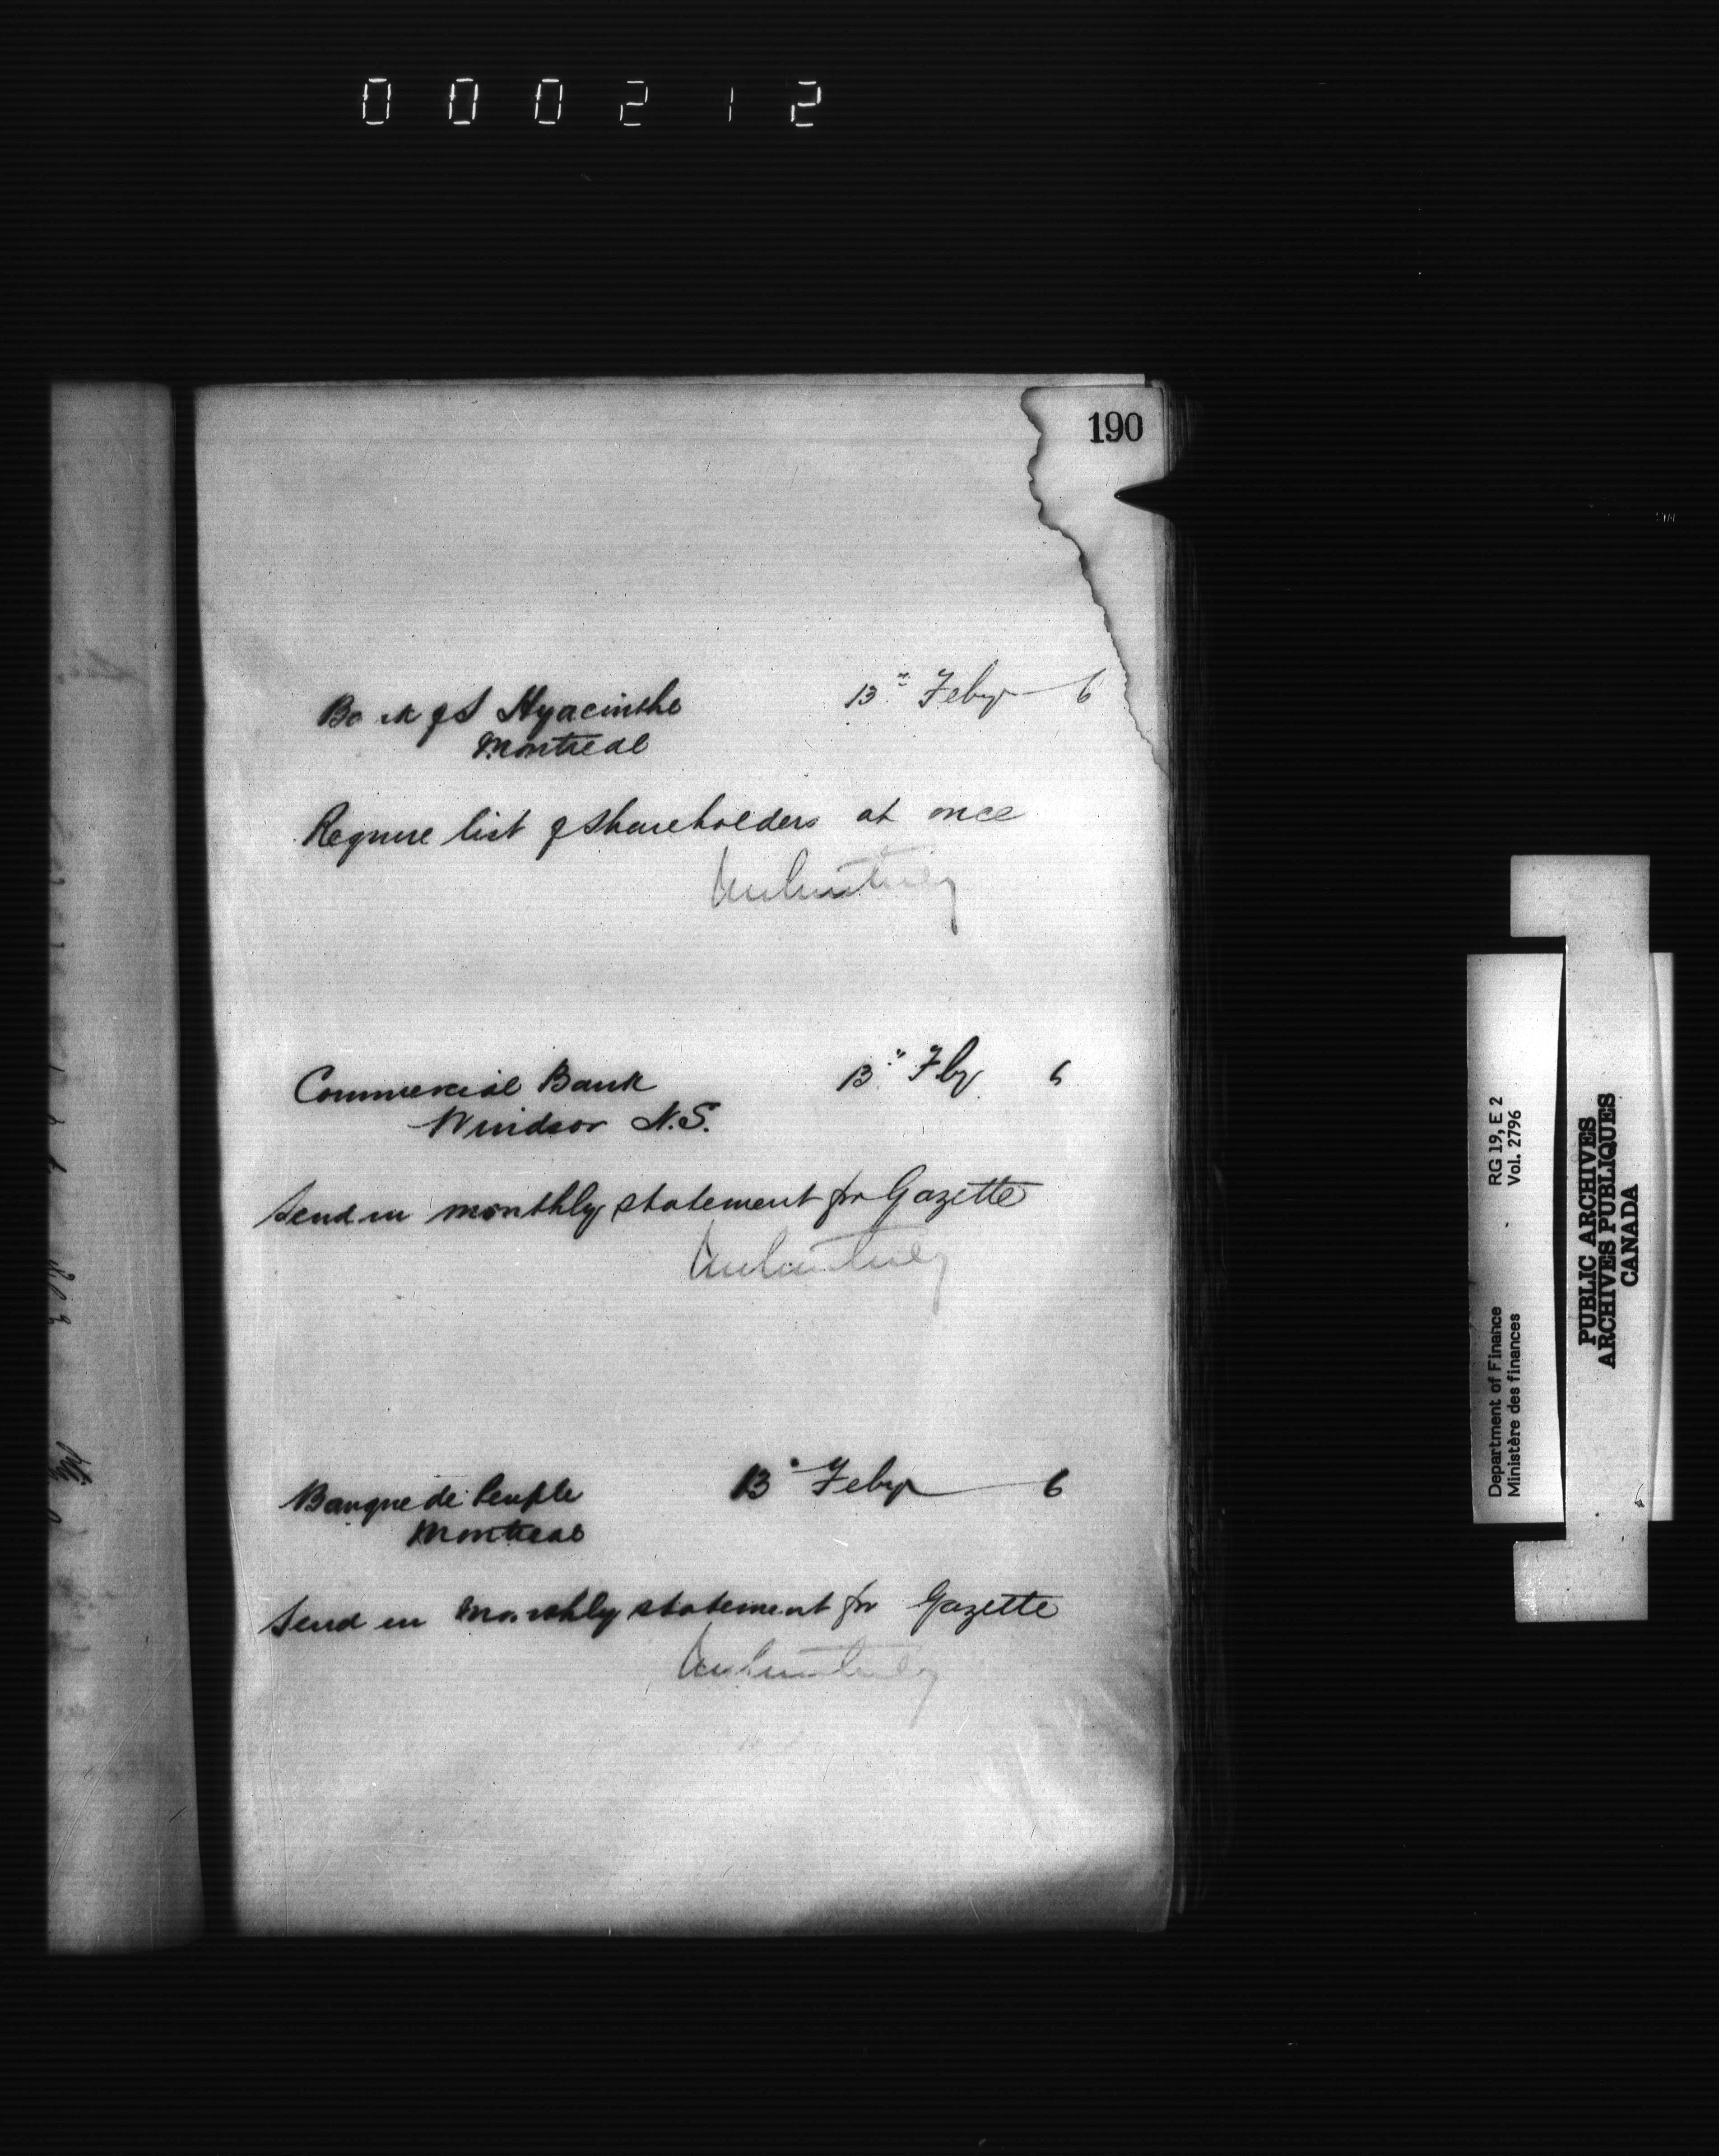 000212
190
Bank of S Hyacinthe 13" Feby 6
Montreal
Require list of shareholders at once
Commercial Bank 13" Fby 6
Windsor N.S.
Send in monthly statement for Gazette
Banque de Peuple 13" Feby 6
Montreal
Send in monthly statement for Gazette
Department of Finance RG 19, E 2
Ministère des finances Vol. 2796
PUBLIC ARCHIVES
ARCHIVES PUBLIQUES
CANADA